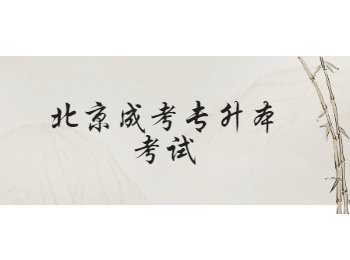 北京成考专升本
考试